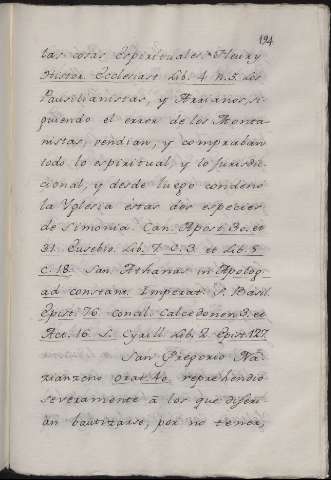 124
las cosas Espirituales. Fleury
Histor. Ecclesiast Lib. 4 n. 5. Los
Paulilianistas, y Arrianos, si-
guiendo el error de los Monta-
nistas, vendian, y compraban
todo lo espiritual, y lo Jurisdic-
cional, y desde luego condenó
la Yglesia estas dos especies
de simonia. Can. Apost 30. et
31. Eusebio. Lib. 7 C. 3. et Lib. 5
C. 18. San Athanas. in Apolog.
ad constant. Imperat. S. Basil.
Epist. 76. concil. Calcedonen 3. et
Act. 16. S. Cyrill Lib. 2 Epist. 127.
San Gregorio Na-
zianzeno orat 40. reprehendio
severamente á los que diferi-
an bautizarse, por no tener,